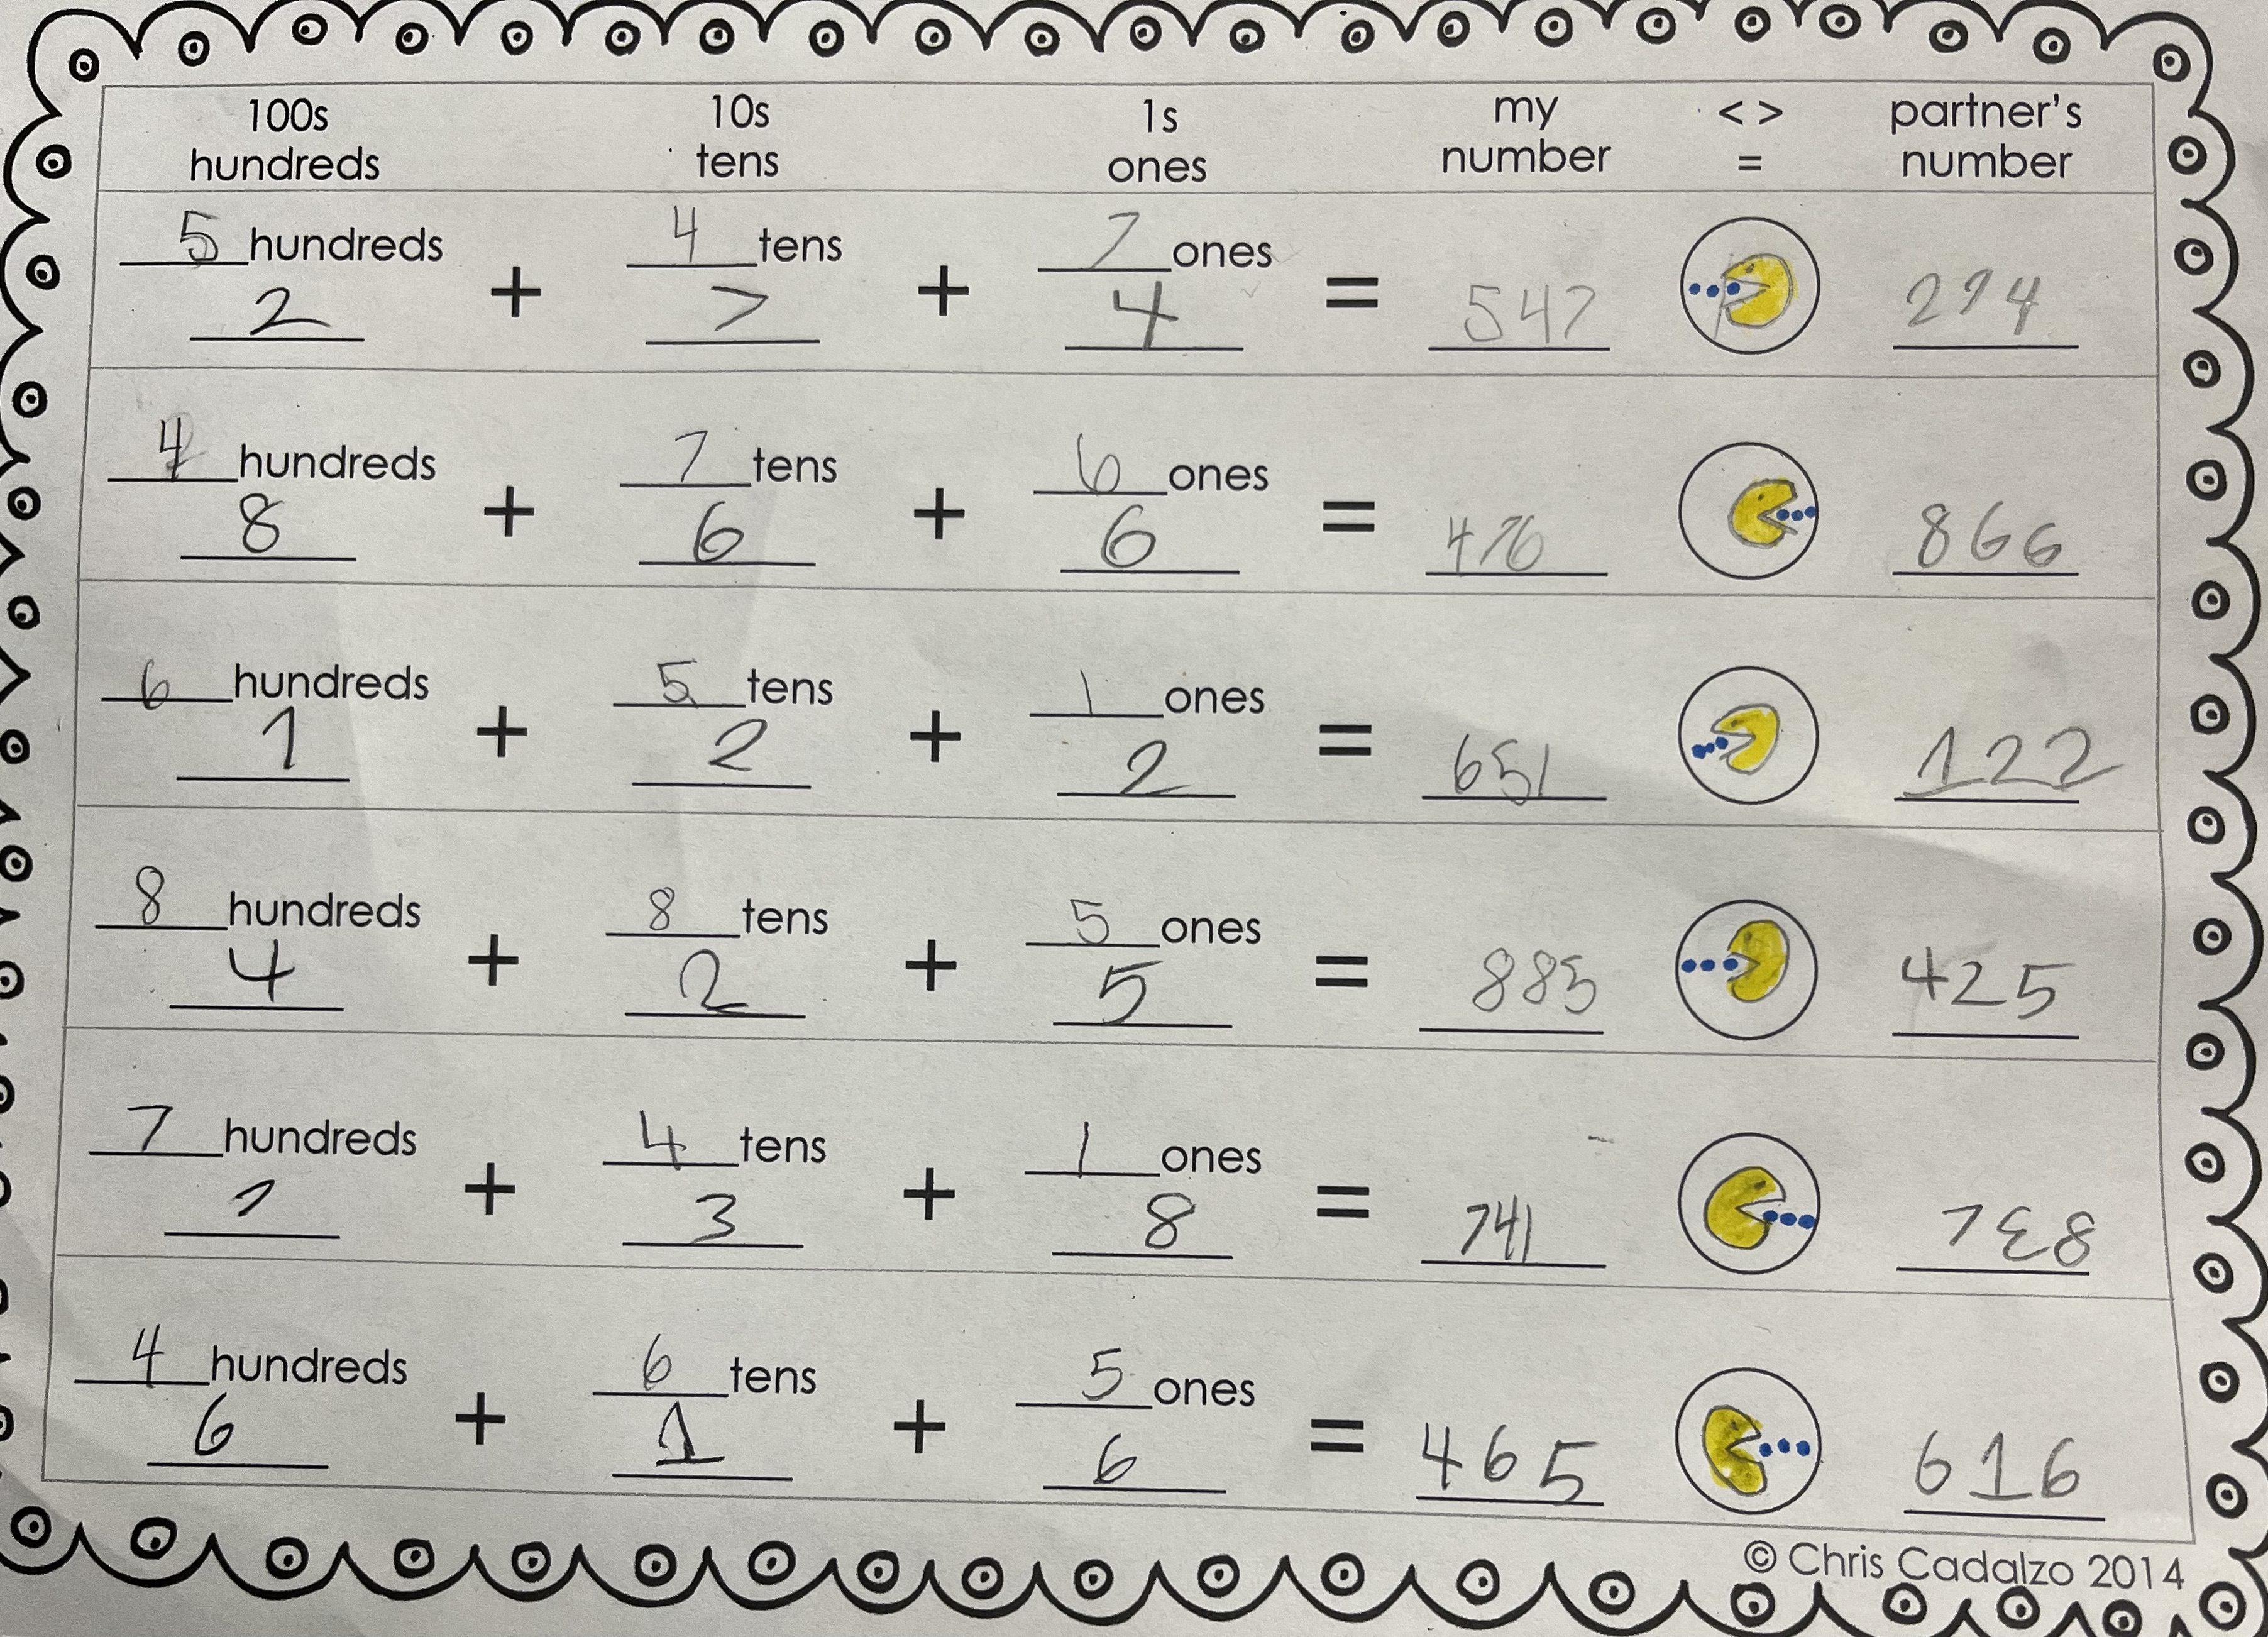 100s 10s 1s my < > partner's
hundreds tens ones number = number
5 hundreds 4 tens 7 ones
2 + 7 + 4 = 547 274
4 hundreds 7 tens 6 ones
8 + 6 + 6 = 476 866
6 hundreds 5 tens 1 ones
1 + 2 + 2 = 651 122
8 hundreds 8 tens 5 ones
4 + 2 + 5 = 885 425
7 hundreds 4 tens 1 ones
7 + 3 + 8 = 741 738
4 hundreds 6 tens 5 ones
6 + 1 + 6 = 465 616
© Chris Cadalzo 2014